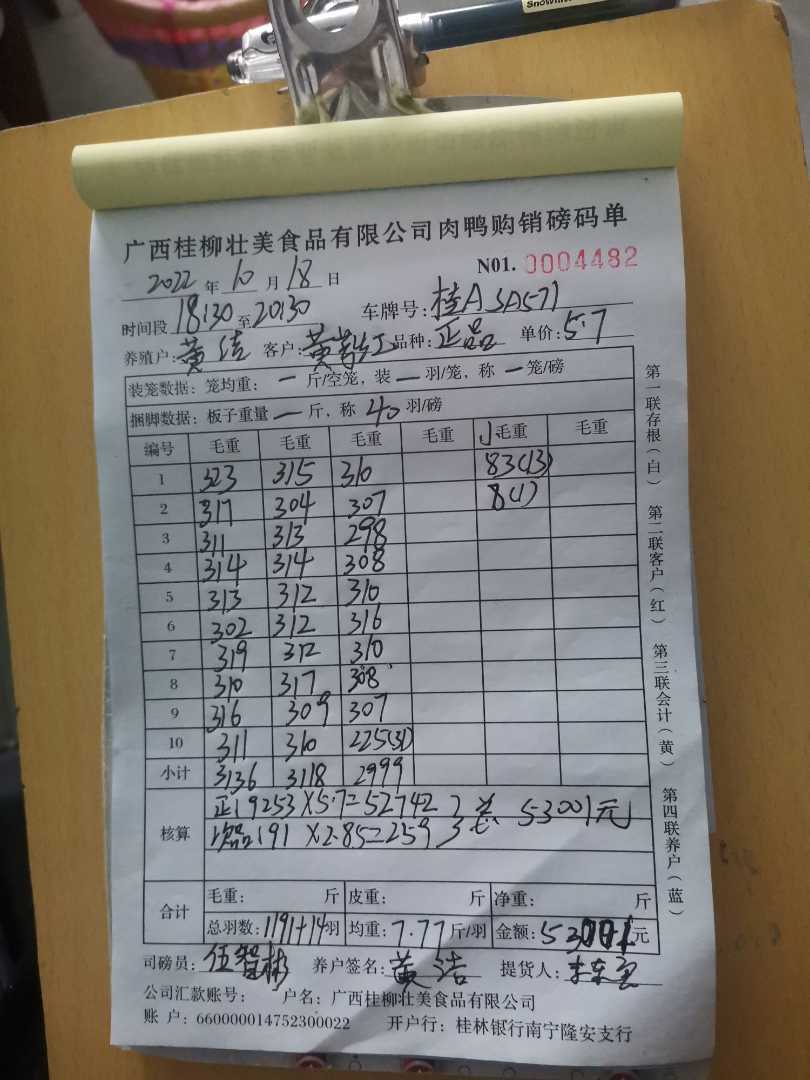 Snowhite
广西桂柳壮美食品有限公司肉鸭购销磅码单
2022 年 10 月 18 日 N01. 0004482
时间段 18:30 至 20:30 车牌号: 桂A SA571
养殖户: 黄洁 客户: 黄 品种: 正品 单价: 5.7
装笼数据: 笼均重: 一 斤/空笼, 装 一 羽/笼, 称 一 笼/磅
捆脚数据: 板子重量 一 斤, 称 40 羽/磅
编号 毛重 毛重 毛重 毛重 J毛重 毛重
1 323 315 310 83(13)
2 317 304 307 8(1)
3 311 313 298
4 314 314 308
5 313 312 310
6 302 312 316
7 319 312 310
8 310 317 308
9 316 309 307
10 311 310 225(31)
小计 3136 3118 2999
核算 正19253×5.7=52742 } 共: 53001元
次品:191 ×2.85=259
合计 毛重: 斤 皮重: 斤 净重: 斤
总羽数: 1191+14羽 均重: 7.77斤/羽 金额: 53001元
司磅员: 伍智彬 养户签名: 黄洁 提货人:
公司汇款账号: 户名: 广西桂柳壮美食品有限公司
账户: 660000014752300022 开户行: 桂林银行南宁隆安支行
第一联存根(白) 第二联客户(红) 第三联会计(黄) 第四联养户(蓝)